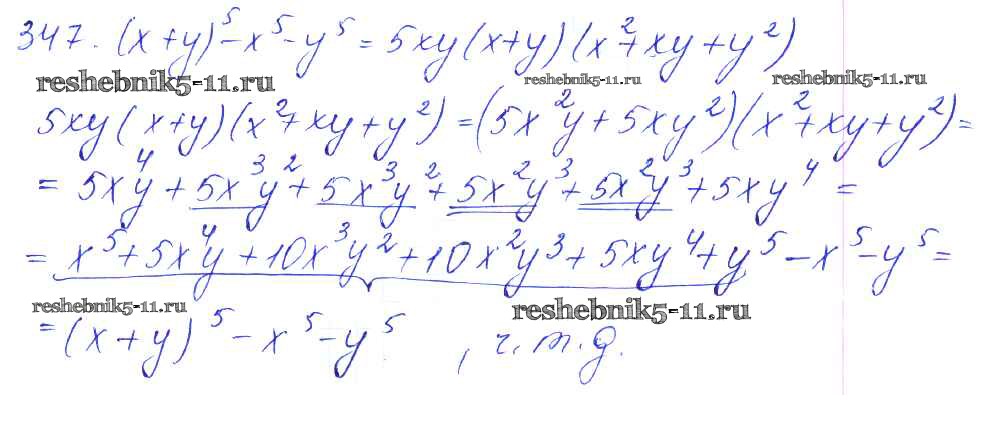 347. (x+y)⁵-x⁵-y⁵ = 5xy(x+y)(x²+xy+y²)
reshebnik5-11.ru reshebnik5-11.ru reshebnik5-11.ru
5xy(x+y)(x²+xy+y²) = (5x²y+5xy²)(x²+xy+y²) =
= 5x⁴y + 5x³y² + 5x³y² + 5x²y³ + 5x²y³ + 5xy⁴ =
= x⁵+5x⁴y+10x³y²+10x²y³+5xy⁴+y⁵-x⁵-y⁵ =
reshebnik5-11.ru reshebnik5-11.ru
= (x+y)⁵-x⁵-y⁵, ч.т.д.